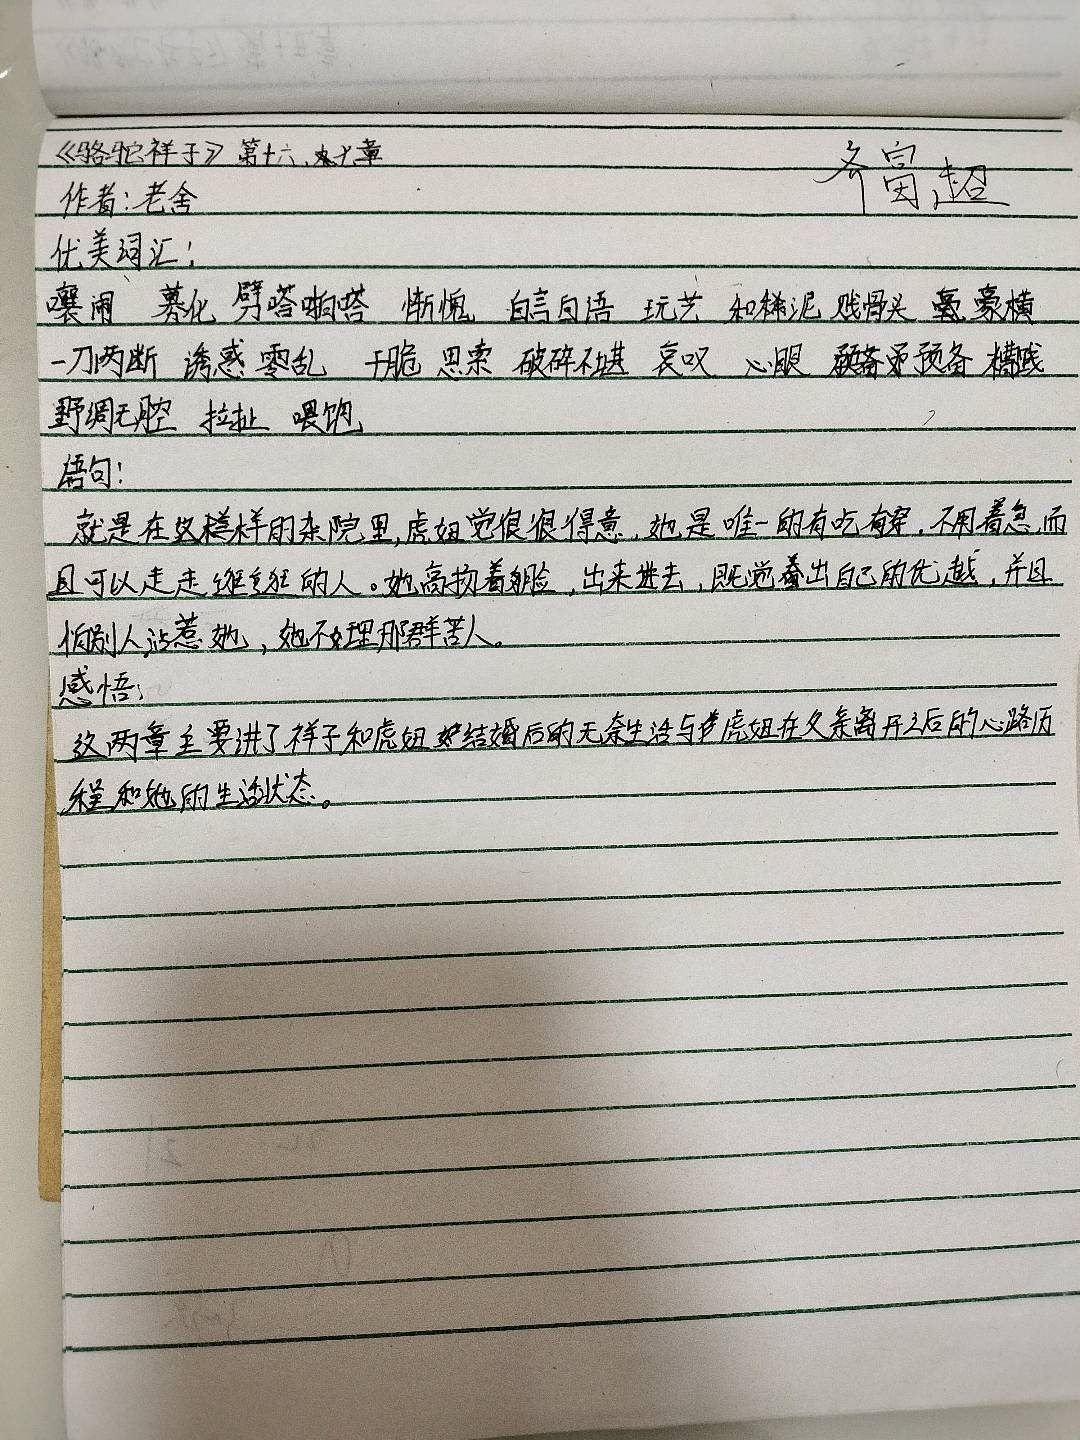 《骆驼祥子》第十六、十七章
齐富超
作者:老舍
优美词汇:
嚷闹 募化 劈嗒啪嗒 惭愧 自言自语 玩艺 和稀泥 贱骨头 豪横
一刀两断 诱惑 零乱 干脆 思索 破碎不堪 哀叹 心眼 预备 糟践
野调无腔 拉扯 喂饱
语句:
就是在这样的杂院里,虎妞觉很很得意,她是唯一的有吃有穿,不用着急,而
且可以走走逛逛的人。她高扬着脸,出来进去,既觉出自己的优越,并且
怕别人沾惹她,她不理那群苦人。
感悟:
这两章主要讲了祥子和虎妞结婚后的无奈生活与虎妞在父亲离开之后的心路历
程和她的生活状态。